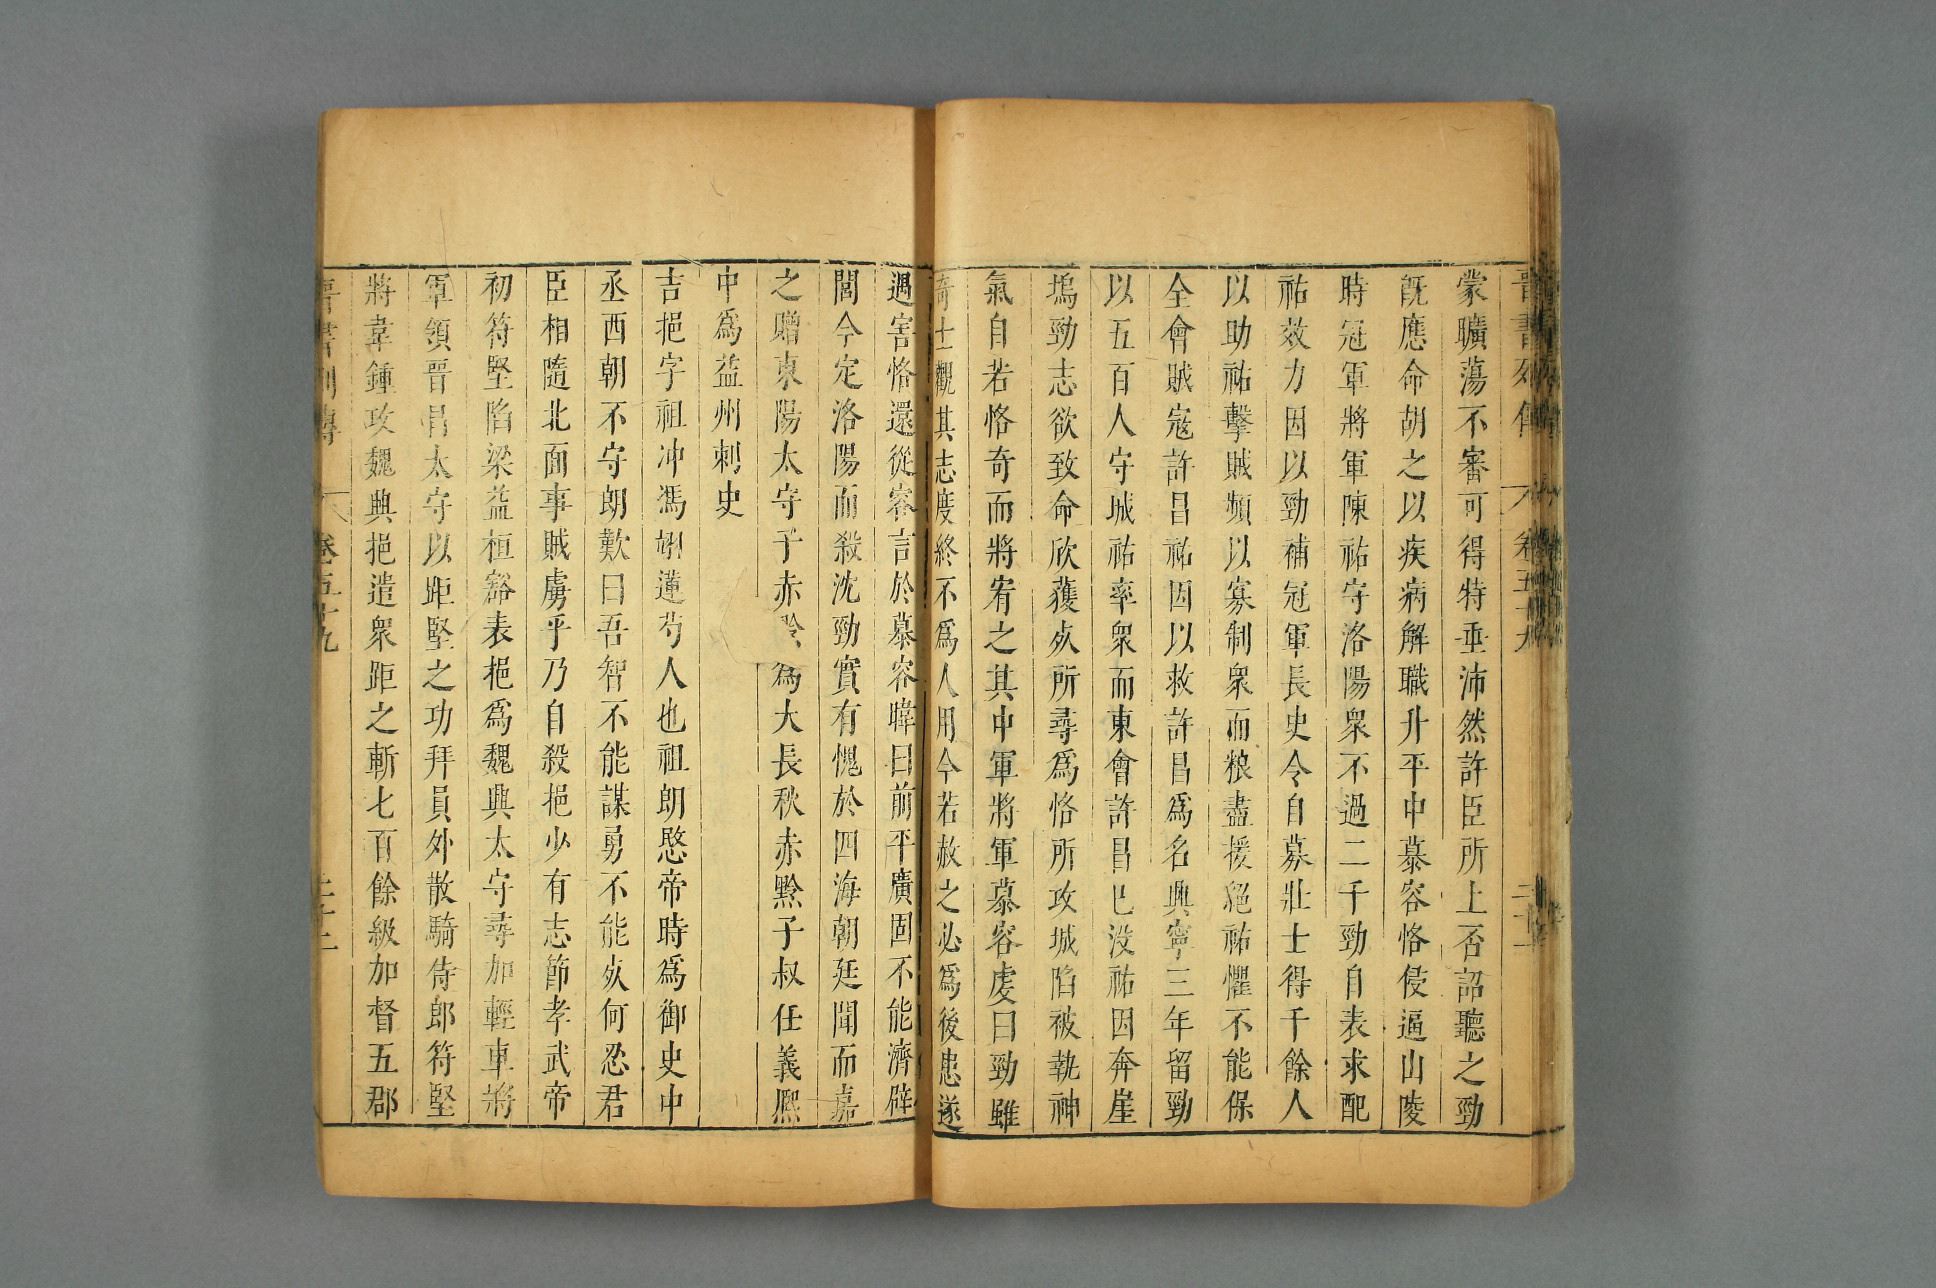 晋書列傳 卷五十九
蒙曠蕩不審可得特垂沛然許臣所上否詔聽之勁
旣應命胡之以疾病解職升平中慕容恪侵逼山陵
時冠軍將軍陳祐守洛陽衆不過二千勁自表求配
祐效力因以勁補冠軍長史令自募壯士得千餘人
以助祐擊賊頻以寡制衆而粮盡援絕祐懼不能保
全會賊寇許昌祐因以救許昌爲名興寧三年留勁
以五百人守城祐率衆而東會許昌已没祐因奔崖
塢勁志欲致命欣獲死所尋爲恪所攻城陷被執神
氣自若恪奇而將宥之其中軍將軍慕容虔曰勁雖
奇士觀其志度終不爲人用今若赦之必爲後患遂
遇害恪還從容言於慕容暐曰前平廣固不能濟辟
閭今定洛陽而殺沈勁實有愧於四海朝廷聞而嘉
之贈東陽太守子赤黔爲大長秋赤黔子叔任義熙
中爲益州刺史
吉挹字祖冲馮翊蓮芍人也祖朗愍帝時爲御史中
丞西朝不守朗歎曰吾智不能謀勇不能死何忍君
臣相隨北面事賊虜乎乃自殺挹少有志節孝武帝
初苻堅陷梁益桓豁表挹爲魏興太守尋加輕車將
軍領晋昌太守以距堅之功拜員外散騎侍郎苻堅
將韋鍾攻魏興挹遣衆距之斬七百餘級加督五郡
晋書列傳 卷五十九 二十二